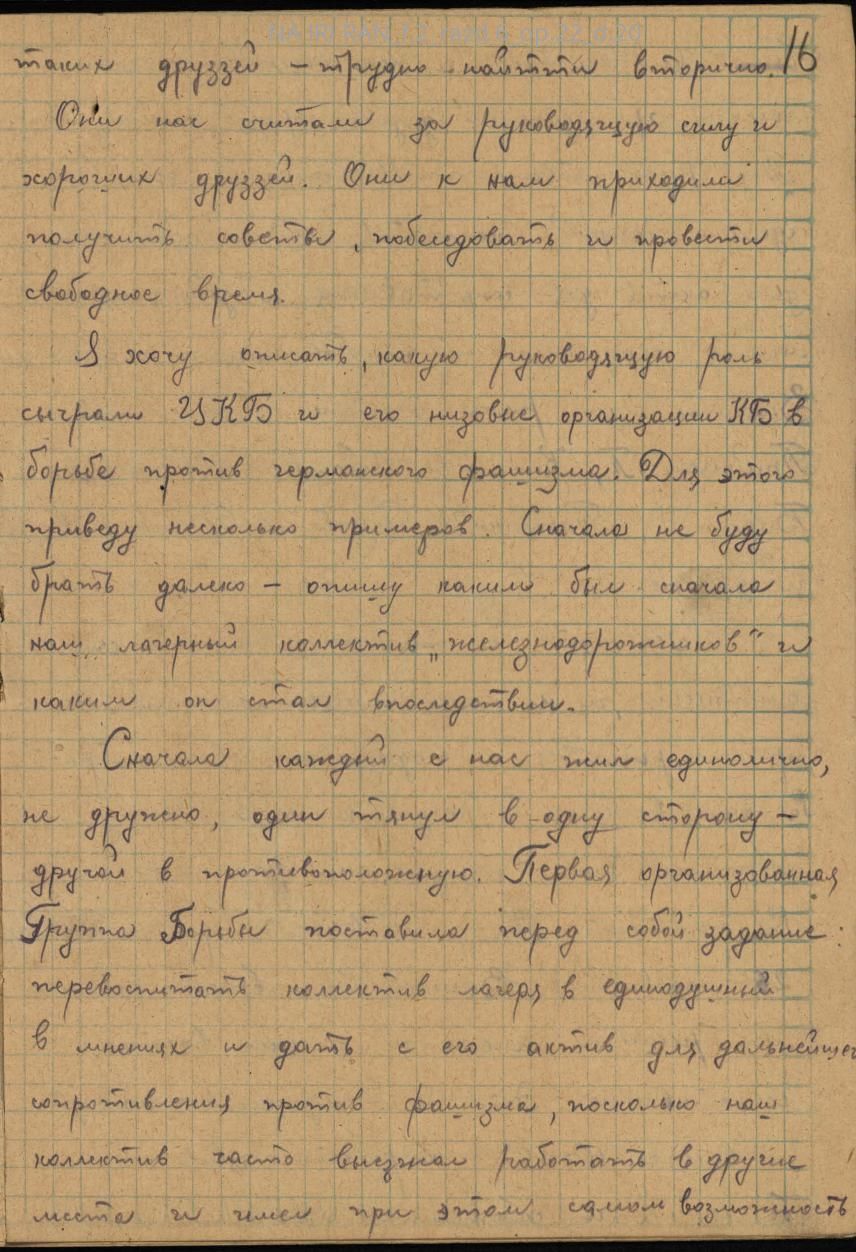 NA IRI RAN F.2 razd.6 op.22 d.20
16
таких друззей – трудно найтти вторично.
Они нас считали за руководящую силу и
хороших друззей. Они к нам приходили
получить советы, побеседовать и провести
свободное время.
Я хочу описать, какую руководящую роль
сыграли ЦКБ и его низовые организации КБ в
борьбе против германского фашизма. Для этого
приведу несколько примеров. Сначала не буду
брать далеко – опишу каким был сначала
наш лагерный коллектив „железнодорожников" и
каким он стал впоследствии.
Сначала каждый с нас жил единолично,
не дружно, один тянул в одну сторону –
другой в противоположную. Первая организованная
Группа Борьбы поставила перед собой задание:
перевоспитать коллектив лагеря в единодушный
в мнениях и дать с его актив для дальнейшег
сопротивления против фашизма, посколько наш
коллектив часто выезжал работать в другие
места и имел при этом самом возможность